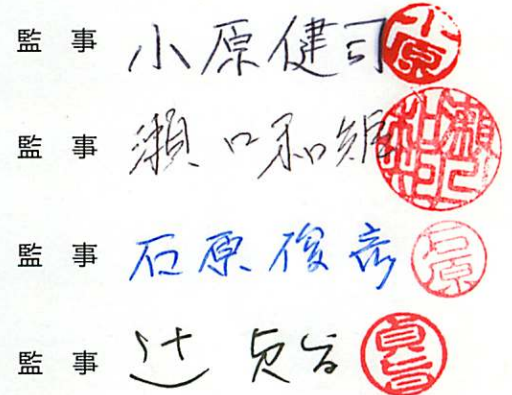 監事 小原健司 小原
監事 瀬口和
監事 石原俊彦 石原
監事 辻 貞旨 貞旨